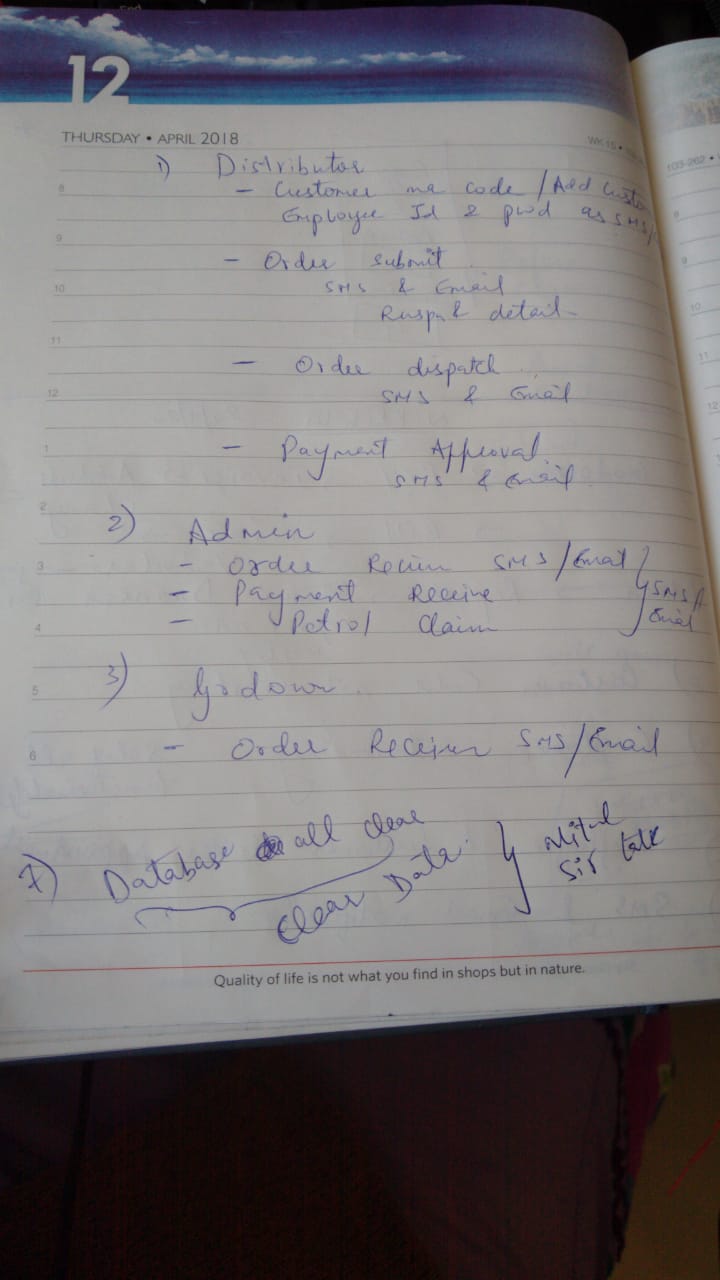 12
THURSDAY • APRIL 2018
WK 15 •
103-262 •
1) Distributor
- Customer ma code / Add Custo
Employee Id & pwd as SMS/
- Order submit
SMS & Email
detail
- Order dispatch
SMS & Email
- Payment Approval
SMS & Email
2) Admin
- Order SMS / Email
- Payment Receive
- Petrol Claim
SMS /
Email
3) Godown
- Order SMS/Email
7) Database all clear
Clear Data
Mitul
Sir talk
8
9
10
11
12
1
2
3
4
5
6
8
9
10
11
12
Quality of life is not what you find in shops but in nature.